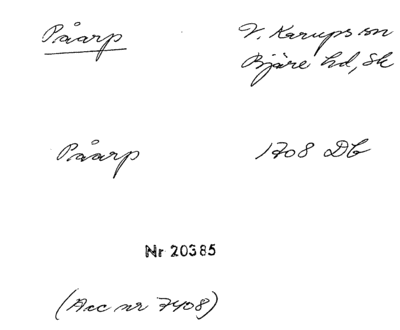 Påarp V. Karups sn
Bjäre hd, Sk
Påarp 1708 Db
Nr 20385
(Acc nr 7408)